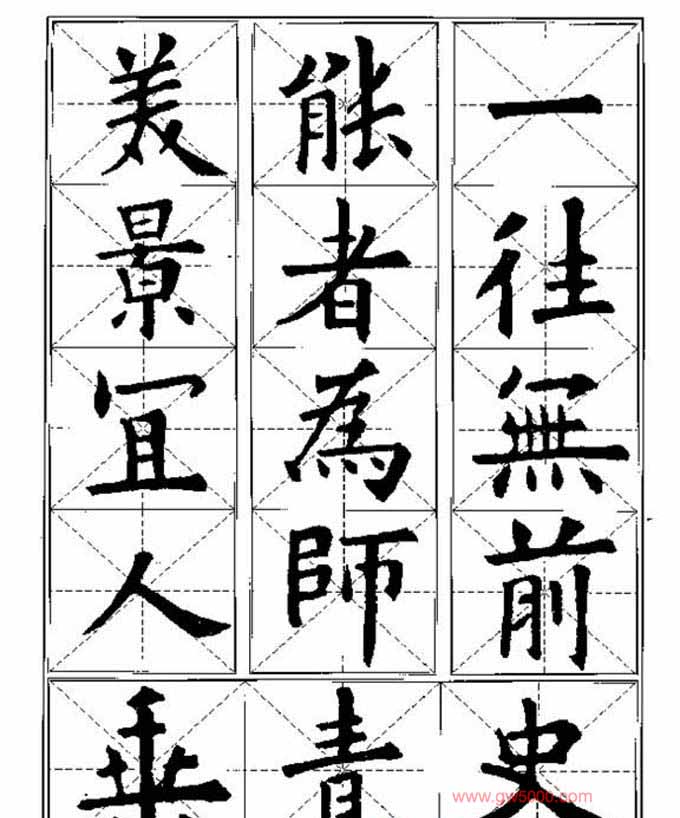 一往無前
能者為師
美景宜人
史
青
垂
www.gw5000.com